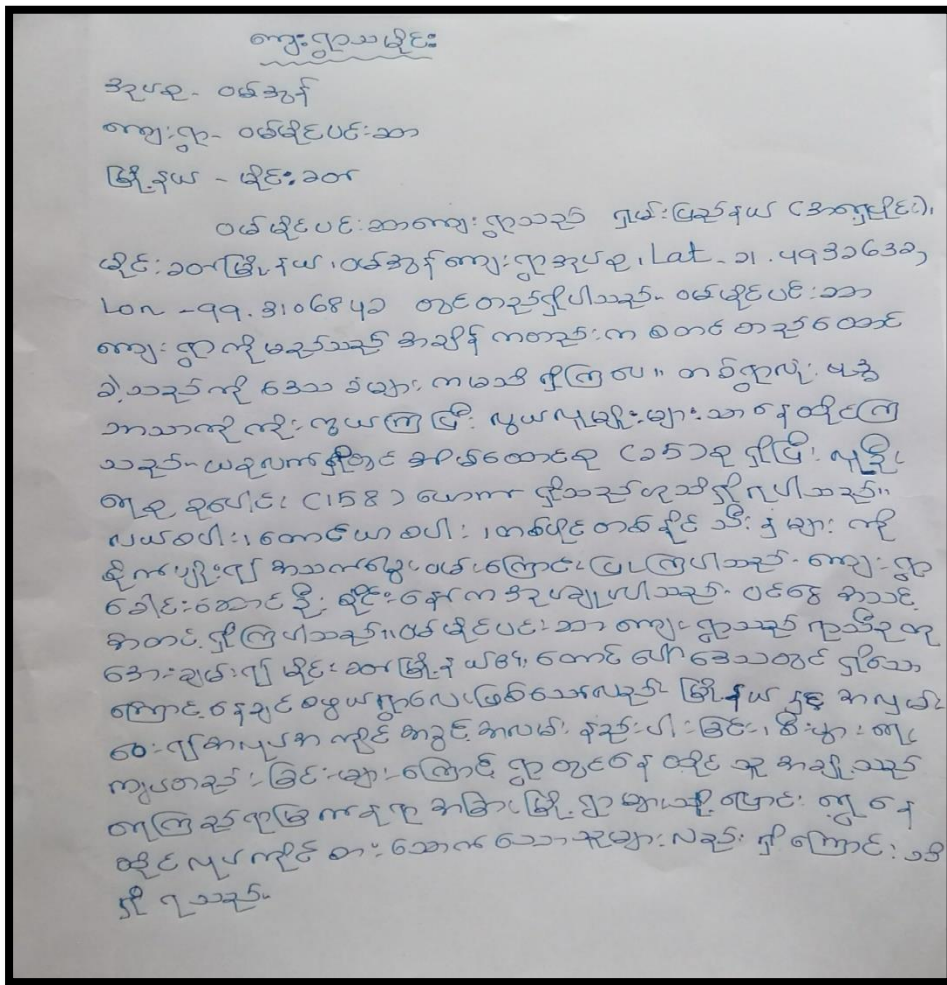 ကျေးရွာသမိုင်း
အုပ်စု - ဝမ်အွန်
ကျေးရွာ - ဝမ်မိုင်ပင်းဆာ
မြို့နယ် - မိုင်းခတ်
ဝမ်မိုင်ပင်းဆာကျေးရွာသည် ရှမ်းပြည်နယ် (အရှေ့ပိုင်း)၊
မိုင်းခတ်မြို့နယ်၊ ဝမ်အွန်ကျေးရွာအုပ်စု၊ Lat - ၁၊
Lon - 99. တွင်တည်ရှိပါသည်။ ဝမ်မိုင်ပင်းဆာ
ကျေးရွာကိုမည်သည့် အချိန် ကတည်းက စတင် တည်ထောင်
ခဲ့သည်ကို ဒေသခံများ ကမသိရှိကြပေ။ တစ်ရွာလုံး ဗုဒ္ဓ
ဘာသာကို ကိုးကွယ်ကြပြီး လွယ်လူမျိုးများသာ နေထိုင်ကြ
သည်။ ယခုလက်ရှိတွင် အိမ်ထောင်စု (၁၅)စု ရှိပြီး လူဦး
ရေစု စုပေါင်း (158) ယောက် ရှိသည်ဟုသိရှိရပါသည်။
လယ်စပါး၊ တောင်ယာစပါး၊ တစ်ပိုင်တစ်နိုင် သီးနှံများ ကို
စိုက်ပျိုး၍ အသက်မွေးဝမ်းကြောင်းပြုကြပါသည်။ ကျေးရွာ
ခေါင်းဆောင်ဦး စိုင်းနော်က အုပ်ချုပ်ပါသည်။ ငွေ အသင့်
အတင့် ရှိကြပါသည်။ ဝမ်မိုင်ပင်းဆာ ကျေးရွာသည် ရာသီဥတု
အေးချမ်း၍ မိုင်းခတ်မြို့နယ်၏ တောင်ပေါ်ဒေသတွင် ရှိသော
ကြောင့် နေချင်စဖွယ်ရွာလေးဖြစ်သော်လည်း မြို့နယ်နှင့် အလှမ်း
ဝေး၍ အလုပ်အကိုင် အခွင့်အလမ်း နည်းပါးခြင်း၊ စီးပွားရေး
ကျပ်တည်းခြင်းများကြောင့် ရွာတွင်နေထိုင်သူ အချို့သည်
ရေကြည်ရာမြက်နုရာ အခြားမြို့ရွာများသို့ ပြောင်းရွှေ့နေ
ထိုင်လုပ်ကိုင် စားသောက်သောသူများလည်း ရှိကြောင်း သိ
ရှိရသည်။